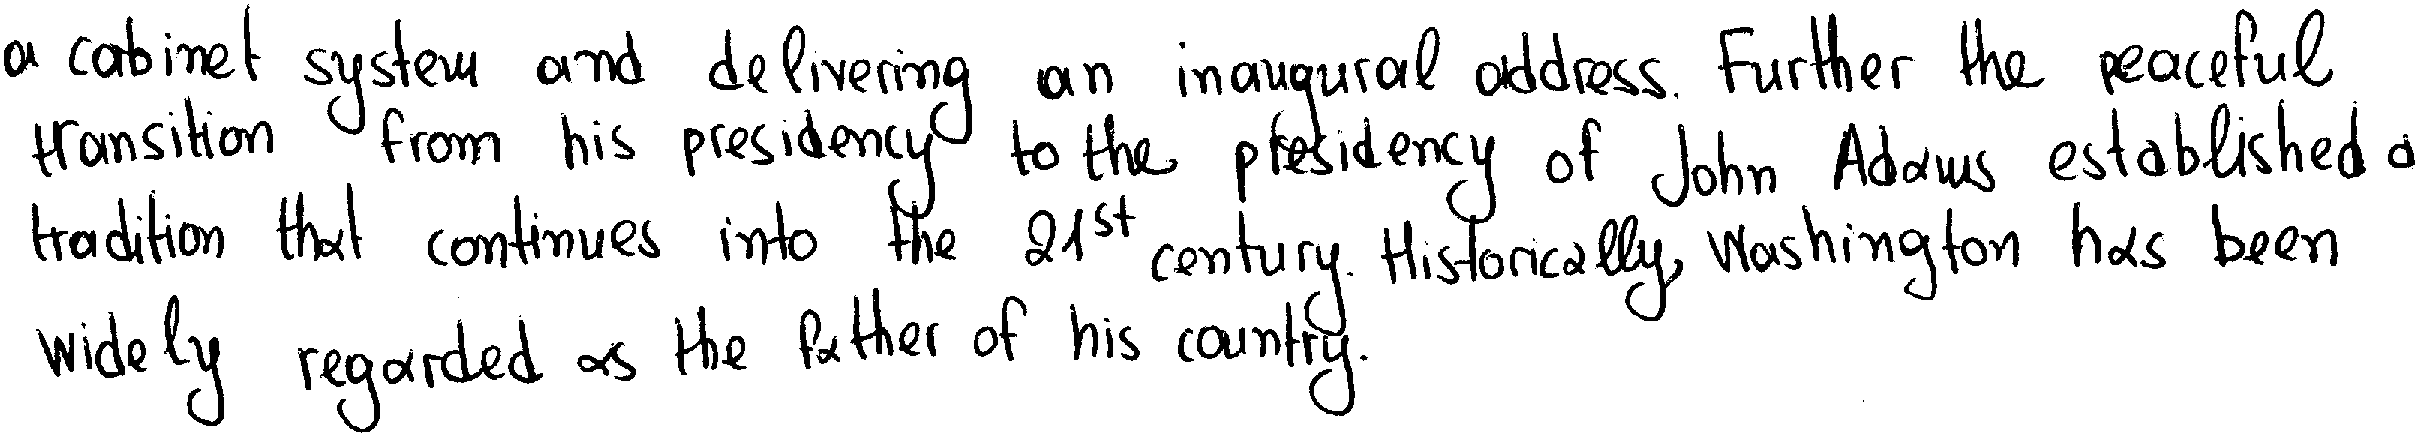 a cabinet system and delivering an inaugural address. Further the peaceful
transition from his presidency to the presidency of John Adams established a
tradition that continues into the 21st century. Historically, Washington has been
widely regarded as the father of his country.